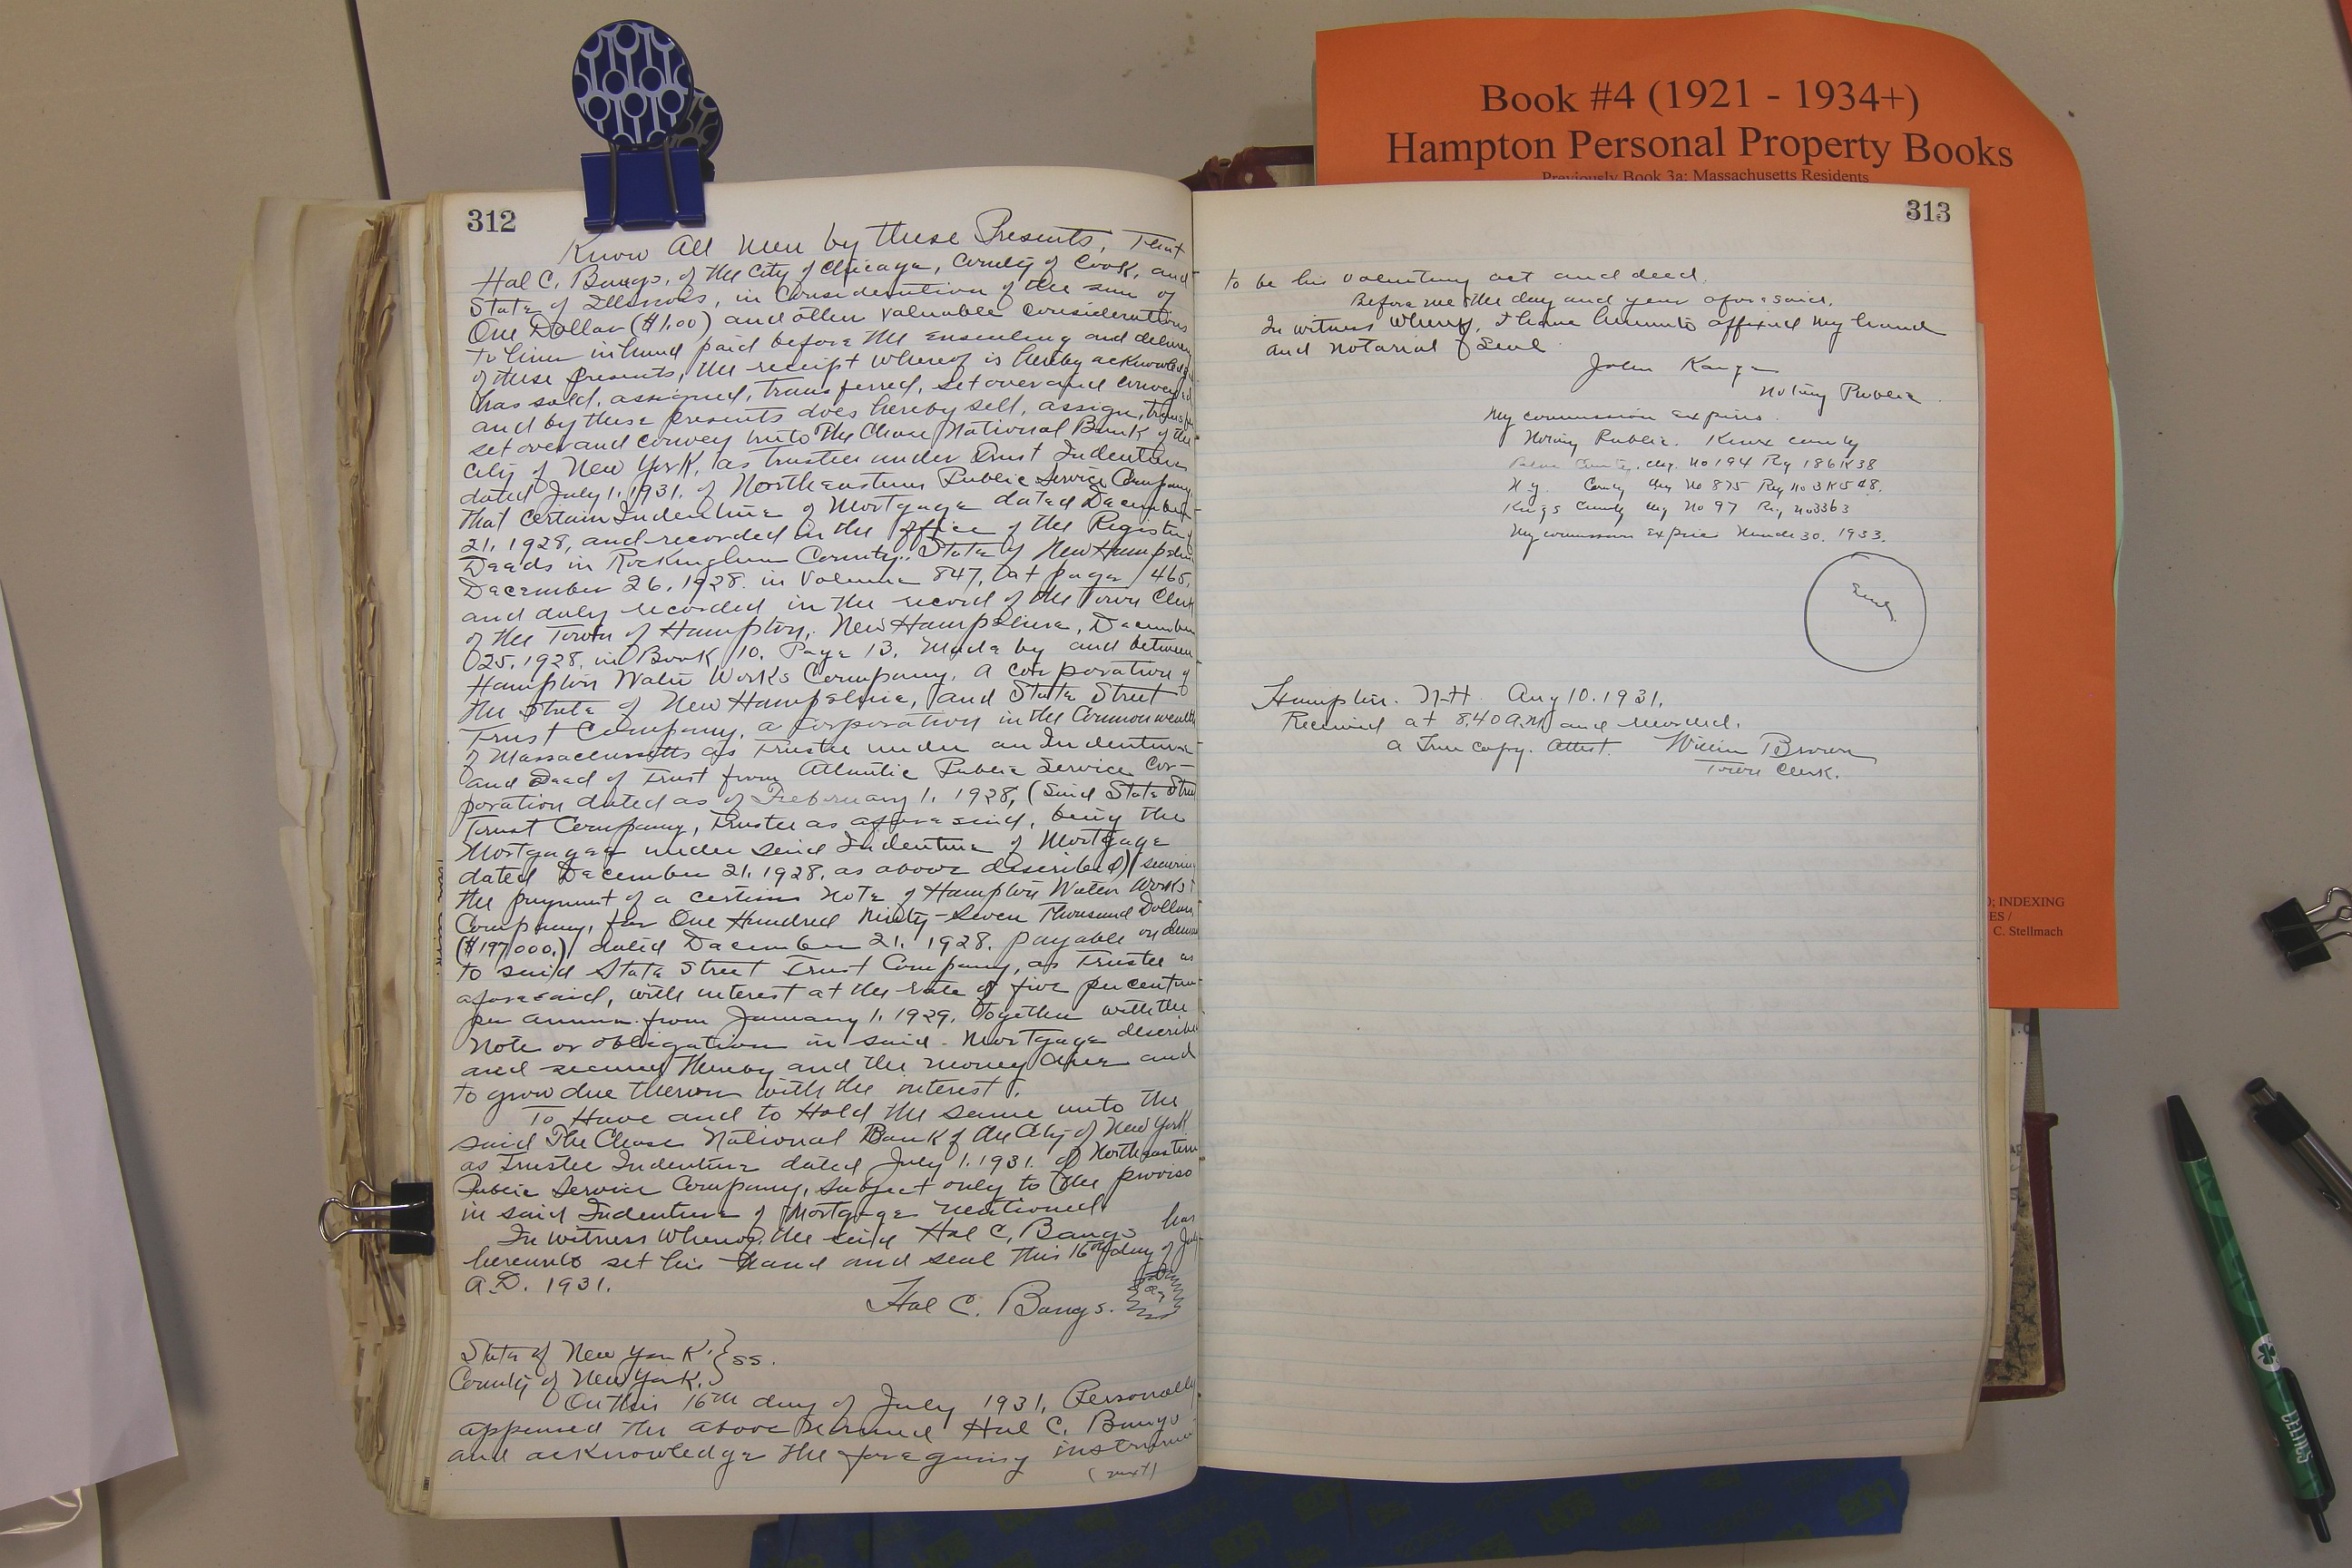 Book #4 (1921 - 1934+)
Hampton Personal Property Books
Previously Book 3a: Massachusetts Residents
312
Know All Men by these Presents, That
Hal C. Bangs, of the City of Chicago, County of Cook, and
State of Illinois, in Consideration of the sum of
One Dollar ($1.00) and other valuable considerations
to him in hand paid before the ensealing and delivery
of these presents, the receipt whereof is hereby acknowledged
has sold, assigned, transferred, set over and conveyed
and by these presents does hereby sell, assign, transfer
set over and convey unto The Chase National Bank of the
City of New York, as trustee under Trust Indenture
dated July 1, 1931, of Northeastern Public Service Company,
that certain Indenture of Mortgage dated December
21, 1928, and recorded in the office of the Registry
Deeds in Rockingham County, State of New Hampshire
December 26, 1928. in Volume 847, at page 465,
and duly recorded in the record of the Town Clerk
of the Town of Hampton, New Hampshire, December
25, 1928, in Book 10. Page 13. Made by and between
Hampton Water Works Company, a corporation of
the State of New Hampshire, and State Street
Trust Company, a Corporation in the Commonwealth
of Massachusetts as Trustee under an Indenture
and Deed of Trust from Atlantic Public Service Cor-
poration dated as of February 1, 1928, (Said State Street
Trust Company, Trustee as aforesaid, being the
Mortgagee under said Indenture of Mortgage
dated December 21, 1928, as above described) securing
the payment of a certain Note of Hampton Water Works
Company, for One Hundred Ninety-Seven Thousand Dollars
($197,000.) dated December 21, 1928, payable on demand
to said State Street Trust Company, as Trustee as
aforesaid, with interest at the rate of five per centum
per annum from January 1, 1929. Together with the
Note or obligation in said Mortgage described
and secured thereby and the money due and
to grow due thereon with the interest.
To Have and to Hold the same unto the
said The Chase National Bank of the City of New York
as Trustee Indenture dated July 1, 1931. of Northeastern
Public Service Company, subject only to the proviso
in said Indenture of Mortgage mentioned.
In witness Whereof, the said Hal C. Bangs has
hereunto set his Hand and seal this 16th day of July
A.D. 1931.
Hal C. Bangs.
State of New York } ss.
County of New York. }
On this 16th day of July 1931, Personally
appeared the above Named Hal C. Bangs
and acknowledge the foregoing instrument
(next)
313
to be his voluntary act and deed.
Before me the day and year aforesaid.
In witness Whereof, I have hereunto affixed my hand
and Notarial Seal
John
Notary Public.
My commission expires.
Notary Public. county
No 194 Reg 186K38
N.Y. County No 875 Reg No 3K548.
Kings County No 97 Reg No 3363
My commission expires March 30. 1933.
Seal
Hampton. N.H. Aug 10. 1931.
Received at 8.40 A.M and recorded.
a True Copy. Attest. William Brown
Town Clerk.
; INDEXING
ES /
C. Stellmach
CELTICS